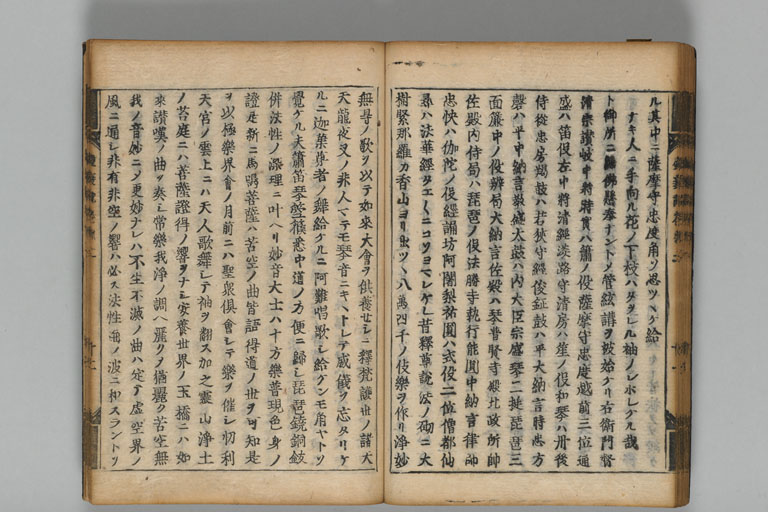 ル其中ニ薩摩守忠度角ソ思ツヽケ給
ナキ人ニ手向ル花ノ下枝ハタヲレハ袖ノシホレケル哉
ト御所ニ 佛懸奉ナントノ管絃講ヲ被始ケリ右衛門督
清宗讃岐中将時實ハ簫ノ役薩摩守忠度越前三位通
盛ハ笛役左中将清經淡路守清房ハ笙ノ役和琴ハ丹後
侍從忠房羯鼓ハ若狭守經俊鉦鼓ハ平大納言時忠方
磬ハ平中納言教盛太鼓ハ内大臣宗盛琴二挺琵琶三
面簾中ノ役辨局大納言佐殿ハ琴普賢寺殿北政所帥
佐殿内侍局ハ琵琶ノ役法勝寺執行能圓中納言律師
忠快ハ伽陀ノ役經誦坊阿闍梨祐圓ハ式役二位僧都仙
尋ハ法華經タエ〱ニコソヨミケレ昔釋尊説法ノ砌ニ大
樹緊那羅カ香山ヨリ出ツヽ八萬四千ノ伎樂ヲ作リ浄妙
無 ノ歌ヲ以テ如來大會ヲ供養セシニ釋梵護世ノ諸天
天龍夜叉ノ非人マテモ琴音ニキヽトレテ威儀ヲ忘タリケ
ルニ迦葉尊者ノ舞給ケルニ阿難唱歌シ給ケンモ角ヤトソ
覺ケル夫簫笛琴箜篌悉中道ノ方便ニ歸シ琵琶鐃銅鈸
併法性ノ深理ニ叶ヘリ妙音大士ハ十方樂普現色身ノ
證是新ニ馬鳴菩薩ハ苦空ノ曲皆語得道ノ世ヲ可知是
ヲ以極樂界會ノ月前ニハ聖衆倶會シテ樂ヲ催シ忉利
天宮ノ雲上ニハ天人歌舞シテ袖ヲ翻ス加之靈山浄土
ノ苔庭ニハ菩薩證得ノ響ヲナシ安養世界ノ玉橋ニハ如
來讃嘆ノ曲ヲ奏シ常樂我浄ノ調ヘ麗ク 苦空無
我ノ音妙ニメ更妙ナレハ不生不滅ノ曲ハ定テ虚空界ノ
風ニ通シ非有非空ノ響ハ必ス法性海ノ波ニ和スラントソ